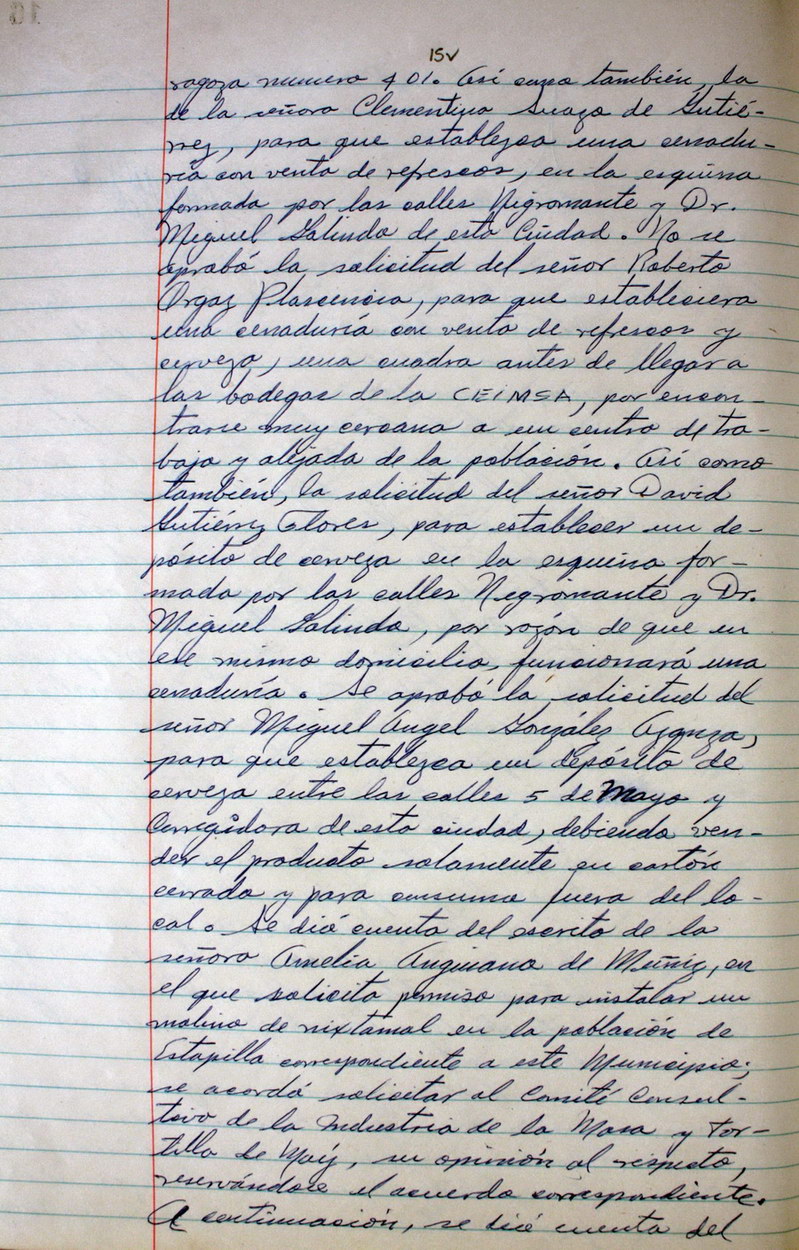 15v
ragoza numero 401. Así como también, la
de la señora Clementina Suazo de Gutié-
rrez, para que establezca una cenadu-
ría con venta de refrescos, en la esquina
formada por las calles Nigromante y Dr.
Miguel Galindo de esta Ciudad. No se
aprobó la solicitud del señor Roberto
Orgaz Plascencia, para que estableciera
una cenaduría con venta de refrescos y
cerveza, una cuadra antes de llegar a
las bodegas de la CEIMSA, por encon-
trarse muy cercana a un centro de tra-
bajo y alejada de la población. Así como
también, la solicitud del señor David
Gutiérrez Flores, para establecer un de-
pósito de cerveza en la esquina for-
mada por las calles Negromante y Dr.
Miguel Galindo, por razón de que en
ese mismo domicilio, funcionará una
cenaduría. Se aprobó la solicitud del
señor Miguel Angel González,
para que establezca un depósito de
cerveza entre las calles 5 de Mayo y
Corregidora de esta ciudad, debiendo ven-
der el producto solamente en cartón
cerrado y para consumo fuera del lo-
cal. Se dió cuenta del escrito de la
señora Amelia Anguiano de Muñiz, en
el que solicita permiso para instalar un
molino de nixtamal en la población de
Estapilla correspondiente a este Municipio;
se acordó solicitar al Comité Consul-
tivo de la Industria de la Masa y Tor-
tilla de Maíz, su opinión al respecto,
reservándose el acuerdo correspondiente.
A continuación, se dió cuenta del